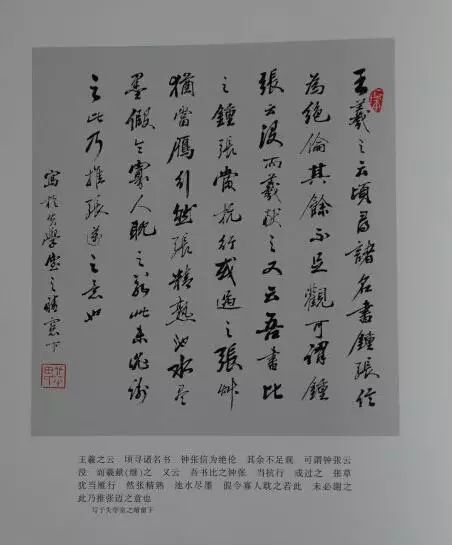 王羲之云頃尋諸名書鍾張信
為絕倫其餘不足觀可謂鍾
張云沒而羲獻之又云吾書比
之鍾張當抗行或過之張艸
猶當鴈行然張精熟池水尽
墨假令寡人耽之若此未必謝
之此乃推張邁之意也
寫於失學堂之晴窗下
王羲之云 顷寻诸名书 钟张信为绝伦 其余不足观 可谓钟张云
没 而羲献(继)之 又云 吾书比之钟张 当抗行 或过之 张草
犹当雁行 然张精熟 池水尽墨 假令寡人耽之若此 未必谢之
此乃推张迈之意也
写于失学堂之晴窗下